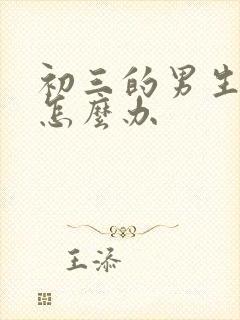 初三的男生
怎麼办
王添